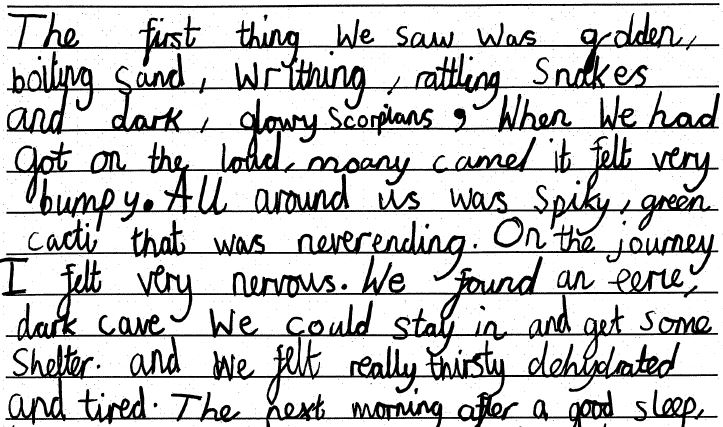 The first thing we saw was golden,
boiling sand, writhing, rattling Snakes
and dark, glowy scorpians, When We had
got on the loud, moany camel it felt very
bumpy. All around us was Spiky, green
cacti that was neverending. On the journey
I felt very nervous. We found an eerie,
dark cave We could stay in and get some
Shelter. and we felt really thirsty dehydrated
and tired. The next morning after a good sleep,